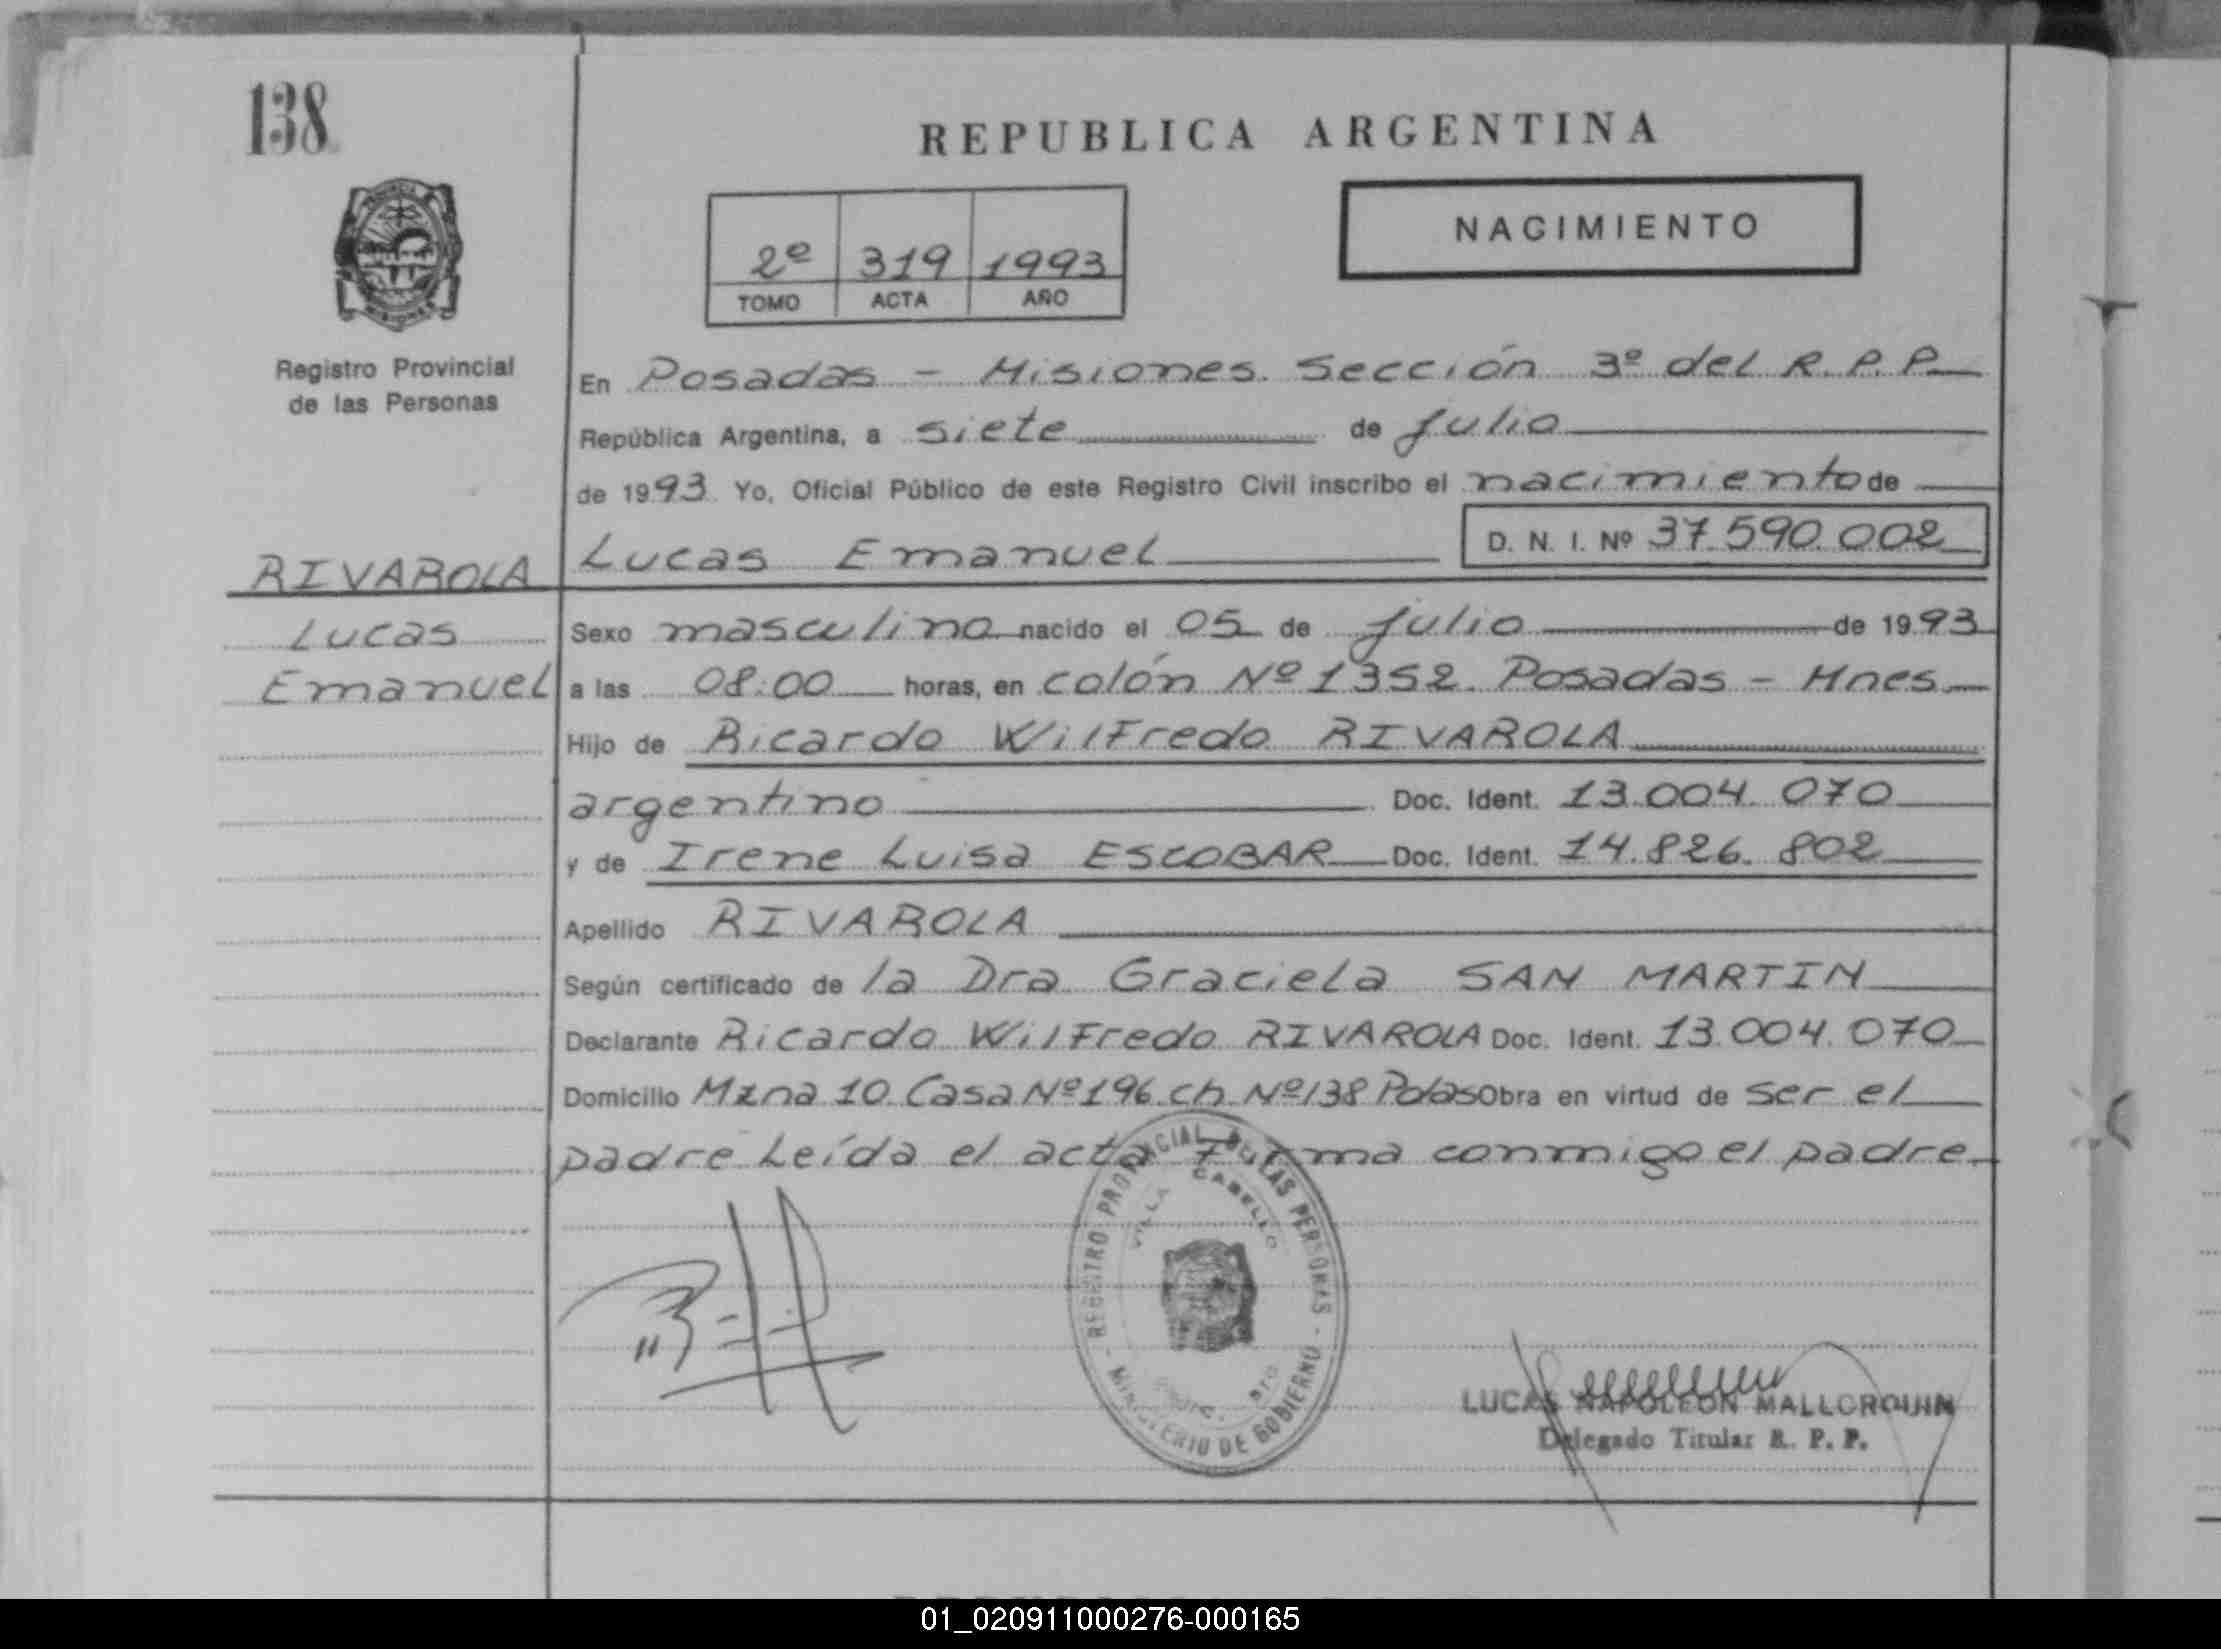 138
REPUBLICA ARGENTINA
NACIMIENTO
2º 319 1993
TOMO ACTA AÑO
Registro Provincial
de las Personas
En Posadas - Misiones. Sección 3º del R.P.P.
República Argentina, a siete de julio
de 1993. Yo, Oficial Público de este Registro Civil inscribo el nacimiento de
Lucas Emanuel D. N. I. Nº 37.590.002
RIVAROLA
Lucas
Emanuel
Sexo masculino nacido el 05 de julio de 1993
a las 08:00 horas, en colón Nº 1352. Posadas - Mnes.
Hijo de Ricardo Wilfredo RIVAROLA
argentino Doc. Ident. 13.004.070
y de Irene Luisa ESCOBAR Doc. Ident. 14.826.802
Apellido RIVAROLA
Según certificado de la Dra Graciela SAN MARTIN
Declarante Ricardo Wilfredo RIVAROLA Doc. Ident. 13.004.070
Domicilio Mzna 10 Casa Nº 196 ch Nº 138 Pdas Obra en virtud de ser el
padre. Leída el acta Firma conmigo el padre.
REGISTRO PROVINCIAL DE LAS PERSONAS
VILLA CABELLO
MINISTERIO DE GOBIERNO
LUCAS NAPOLEON MALLORQUIN
Delegado Titular R. P. P.
01_020911000276-000165